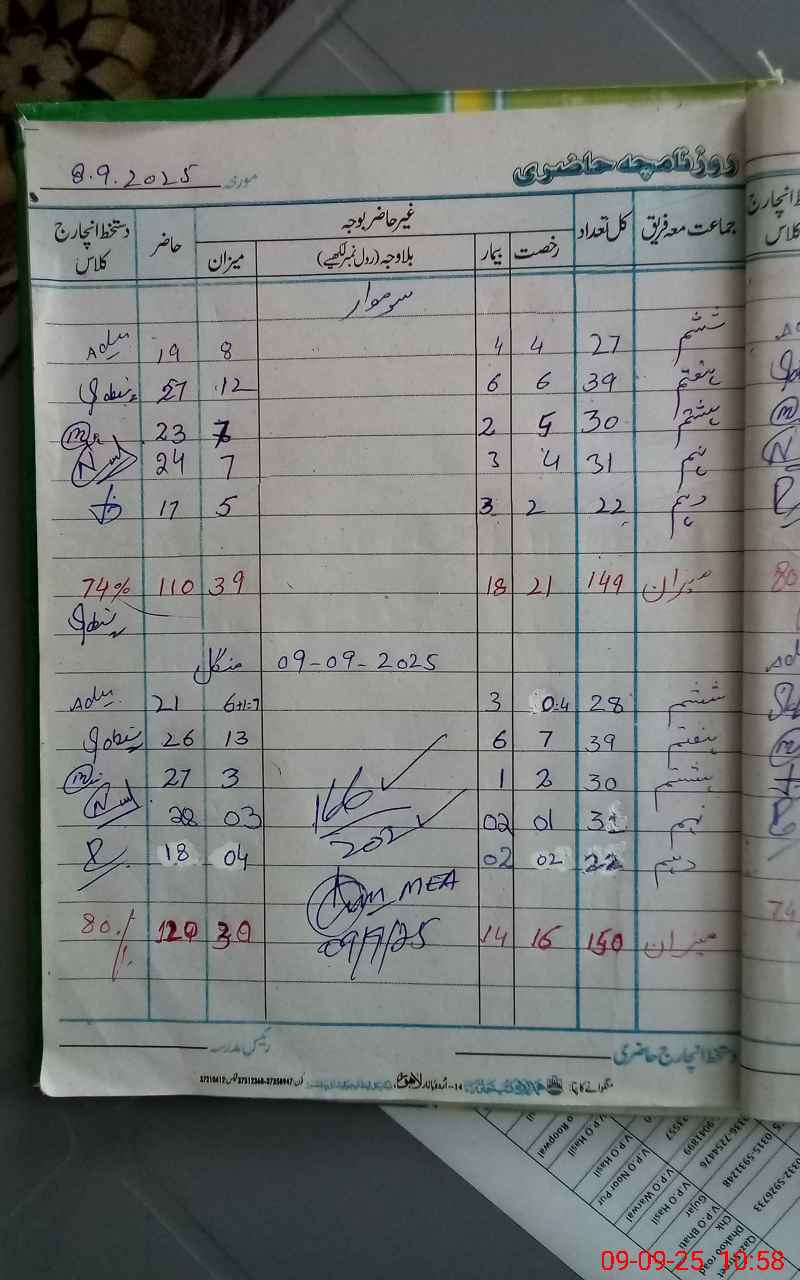 روزنامچہ حاضری
مورخہ 8.9.2025
جماعت معہ فریق کل تعداد غیر حاضر بوجہ حاضر دستخط انچارج کلاس
رخصت بیمار بلاوجہ (رول نمبر لکھیے) میزان
سوموار
ششم 27 4 4 8 19
ہفتم 39 6 6 12 27
ہشتم 30 5 2 7 23
نہم 31 4 3 7 24
دہم 22 2 3 5 17
میزان 149 21 18 39 110 74%
منگل 09-09-2025
ششم 28 0:4 3 6+1=7 21
ہفتم 39 7 6 13 26
ہشتم 30 2 1 3 27
نہم 31 01 02 03 28
دہم 22 02 02 04 18
166
202
MEA
09/9/25
میزان 150 16 14 30 120 80%
دستخط انچارج حاضری رئیس مدرسہ
لاہور
0332-5926733
0315-5931248
V.P.O Bhati
Dhakoo road
Gujar
V.P.O Hasil
V.P.O Warwal
V.P.O Noor Pur
V.P.O Hasil
09-09-25 10:58